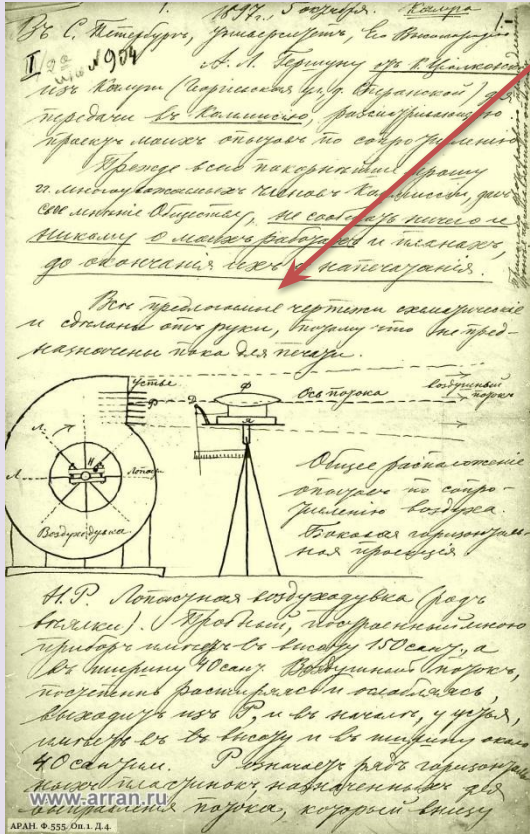 1.
1897 г. 5 октября. Калуга
1.
Въ С. Петербургъ, университетъ, Его Высокородію
II № 904
А. Л. Гершуну отъ К. Ціолковскаго
изъ Калуги (Георгіевская ул. д. Сперанской) для
передачи въ Коммисію, разсматривающую
программу моихъ опытовъ по сопротивленію
Прежде всего покорнѣйше прошу
гг. многоуважаемыхъ членовъ Коммиссіи, давъ
свое мнѣніе Обществу, не сообщать ничего и
никому о моихъ работахъ и планахъ,
до окончанія ихъ и напечатанія.
Всѣ предлагаемые чертежи схематическіе
и сдѣланы отъ руки, потому что не пред-
назначены пока для печати.
Устье
Р
Д
Ф
Ось потока
воздушный
потокъ
Л
Л
Н
Лопасть
Воздуходувка
Я
Общее расположеніе
опытовъ по сопро-
тивленію воздуха.
Боковая горизонталь-
ная проекція
Н. Р. Лопастная воздуходувка (родъ
вѣялки). Пробный, построенный мною
приборъ имѣетъ въ высоту 150 сант., а
въ ширину 40 сант. Воздушный потокъ,
постепенно расширяясь и ослабляясь,
выходитъ изъ Р, и въ началѣ, у устья,
имѣетъ въ высоту и въ ширину около
40 сантим. Р означаетъ рядъ горизонталь-
ныхъ пластинокъ, назначенныхъ для
выправленія потока, который внизу
www.arran.ru
АРАН. Ф.555. Оп.1. Д.4.